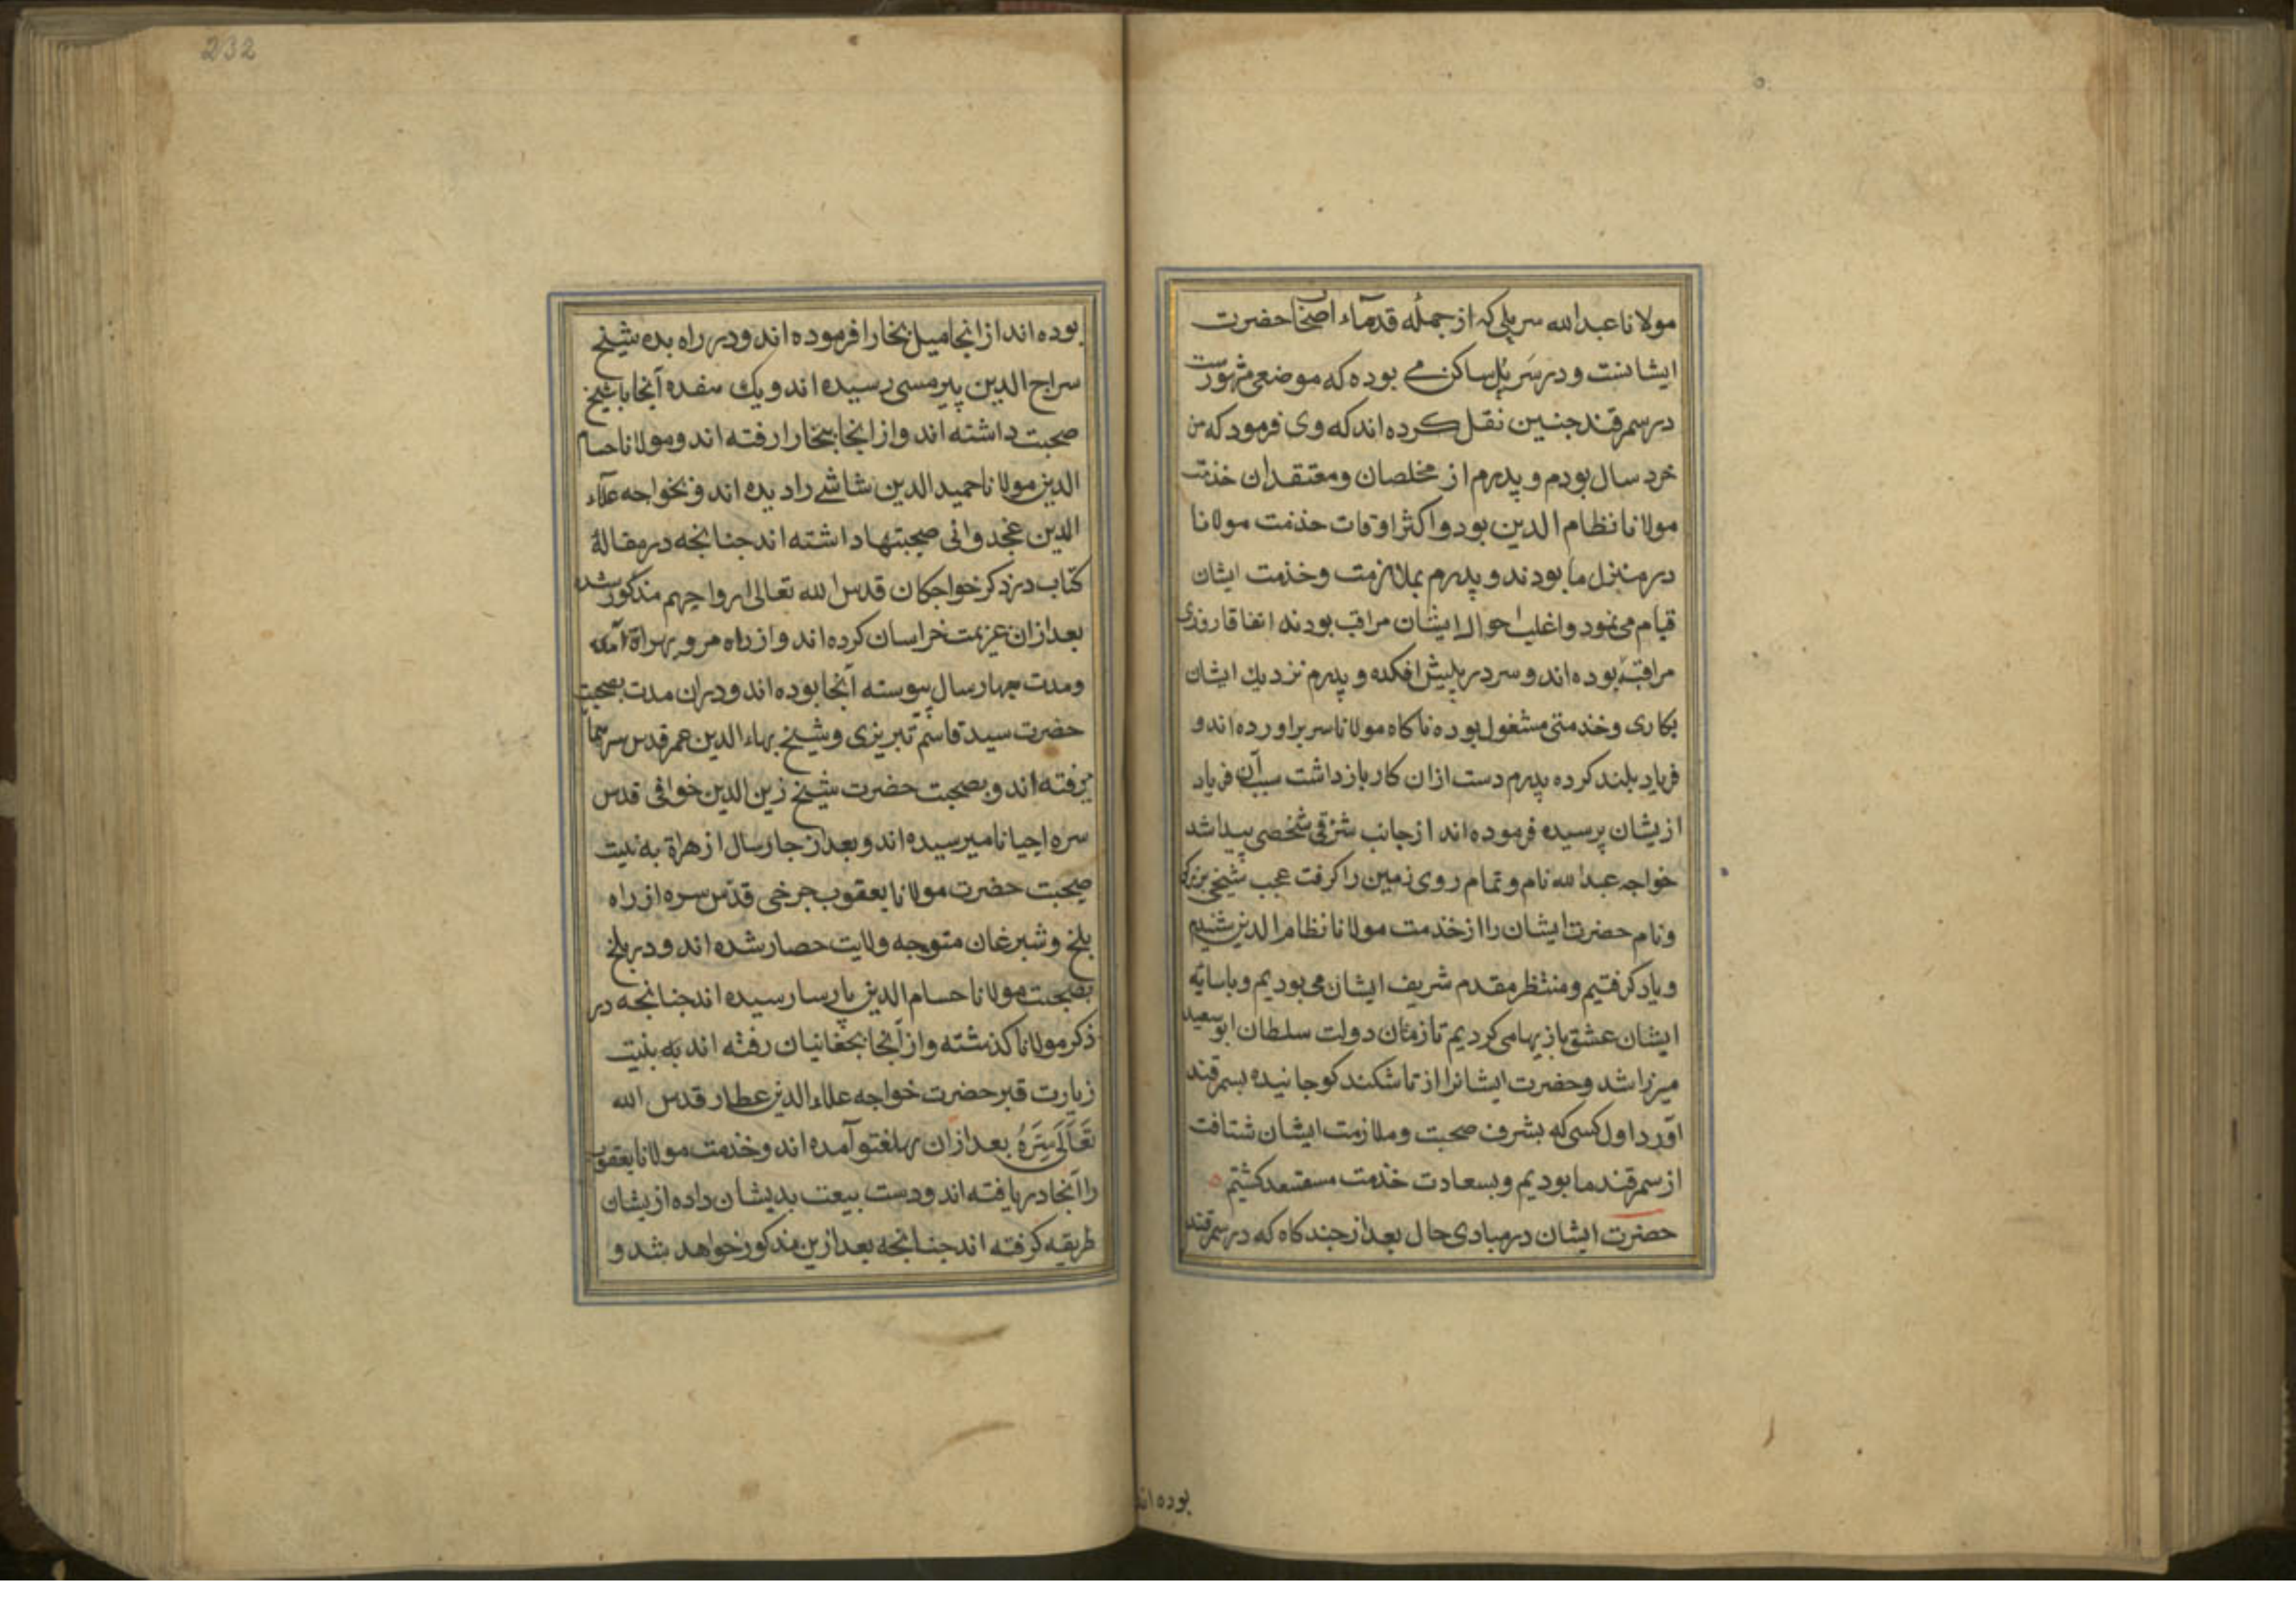 مولانا عبدالله سرپلی که از جملهٔ قدماء اصحاب حضرت
ایشانست و در سَر پُل ساکن می بوده که موضعی مشهورست
در سمرقند جنین نقل کرده اند که وی فرمود که من
خرد سال بودم و پدرم از مخلصان و معتقدان خذمت
مولانا نظام الدین بود و اکثر اوقات خذمت مولانا
در منزل ما بودند و پدرم بملازمت و خذمت ایشان
قیام می نمود و اغلب احوال ایشان مراقب بودند اتفاقا روزی
مراقب بوده اند و سر در پیش افکنده و پدرم نزدیك ایشان
بکاری و خذمتی مشغول بوده ناکاه مولانا سر براورده اند و
فریاد بلند کرده پدرم دست ازان کار باز داشت سبب آن فریاد
ازیشان پرسیده فرموده اند از جانب شرقی شخصی پیدا شد
خواجه عبدالله نام و تمام روی زمین را کرفت عجب شیخی بزرکی
و نام حضرت ایشان را از خذمت مولانا نظام الدین شنیدم
و یاد کرفتیم و منتظر مقدم شریف ایشان می بودیم و با سایهٔ
ایشان عشق بازیها می کردیم تا زمان دولت سلطان ابو سعید
میرزا شد و حضرت ایشانرا از تاشکند کوجانیده بسمرقند
آورد اول کسی که بشرف صحبت و ملازمت ایشان شتافت
از سمرقند ما بودیم و بسعادت خذمت مستسعد کشتیم
حضرت ایشان در مبادی حال بعد از جند کاه که در سمرقند
بوده اند
232
بوده اند از انجا میل بخارا فرموده اند و در راه بده شیخ
سراج الدین پیرمسی رسیده اند و یك هفده آنجا با شیخ
صحبت داشته اند و از انجا ببخارا رفته اند و مولانا حسام
الدین مولانا حمید الدین شاشی را دیده اند و بخواجه علآء
الدین غجدوانی صحبتها داشته اند جنانجه در مقالهٔ
کتاب در ذکر خواجکان قدس الله تعالی ارواحهم مذکور شده
بعد ازان عزیمت خراسان کرده اند و از راه مرو بهراة آمده
و مدت جهار سال پیوسته آنجا بوده اند و دران مدت بصحبت
حضرت سید قاسم تبریزی و شیخ بهاء الدین عمر قدس سرهما
می رفته اند و بصحبت حضرت شیخ زین الدین خوافی قدس
سره احیانا میرسیده اند و بعد از جار سال از هراة به نیت
صحبت حضرت مولانا یعقوب جرخی قدّس سره از راه
بلخ و شبرغان متوجه ولایت حصار شده اند و در بلخ
بصحبت مولانا حسام الدین پارسا رسیده اند جنانجه در
ذکر مولانا کذشته و از آنجا بجغانیان رفته اند به نیت
زیارت قبر حضرت خواجه علاء الدین عطار قدس الله
تَعَالَی سِرَهُ بعد ازان بهلغتو آمده اند و خذمت مولانا یعقوب
را آنجا دریافته اند و دست بیعت بدیشان داده ازیشان
طریقه کرفته اند جنانجه بعد ازین مذکور خواهد شد و